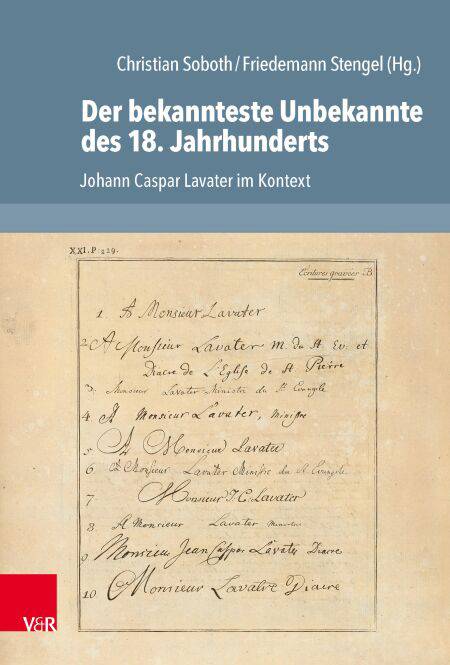 Christian Soboth / Friedemann Stengel (Hg.)
Der bekannteste Unbekannte
des 18. Jahrhunderts
Johann Caspar Lavater im Kontext
XXI. P: 229.
Ecritures gravées B
1. A Monsieur Lavater
2. A Monsieur Lavater M. du St Ev: et
Diacre de L'Eglise de St Pierre
3. Monsieur Lavater Ministre du St Evangile
4. A Monsieur Lavater, Ministre
5 A Monsieur Lavater
6 Monsieur Lavater Ministre du St Evangile
7 Monsieur J. C. Lavater
8 A Monsieur Lavater Ministre
9 Monsieur Jean Caspar Lavater Diacre
10 Monsieur Lavatre Diacre
V&R